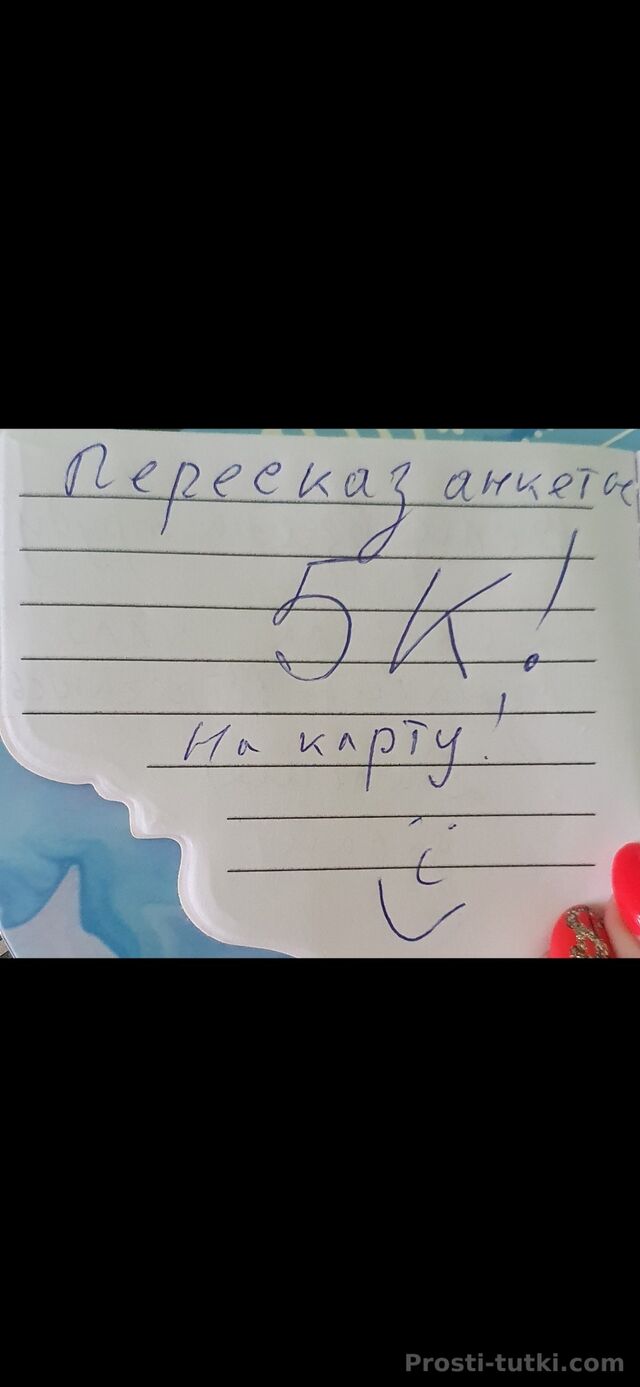 Пересказ анкеты
5К!
На карту!
Prosti-tutki.com